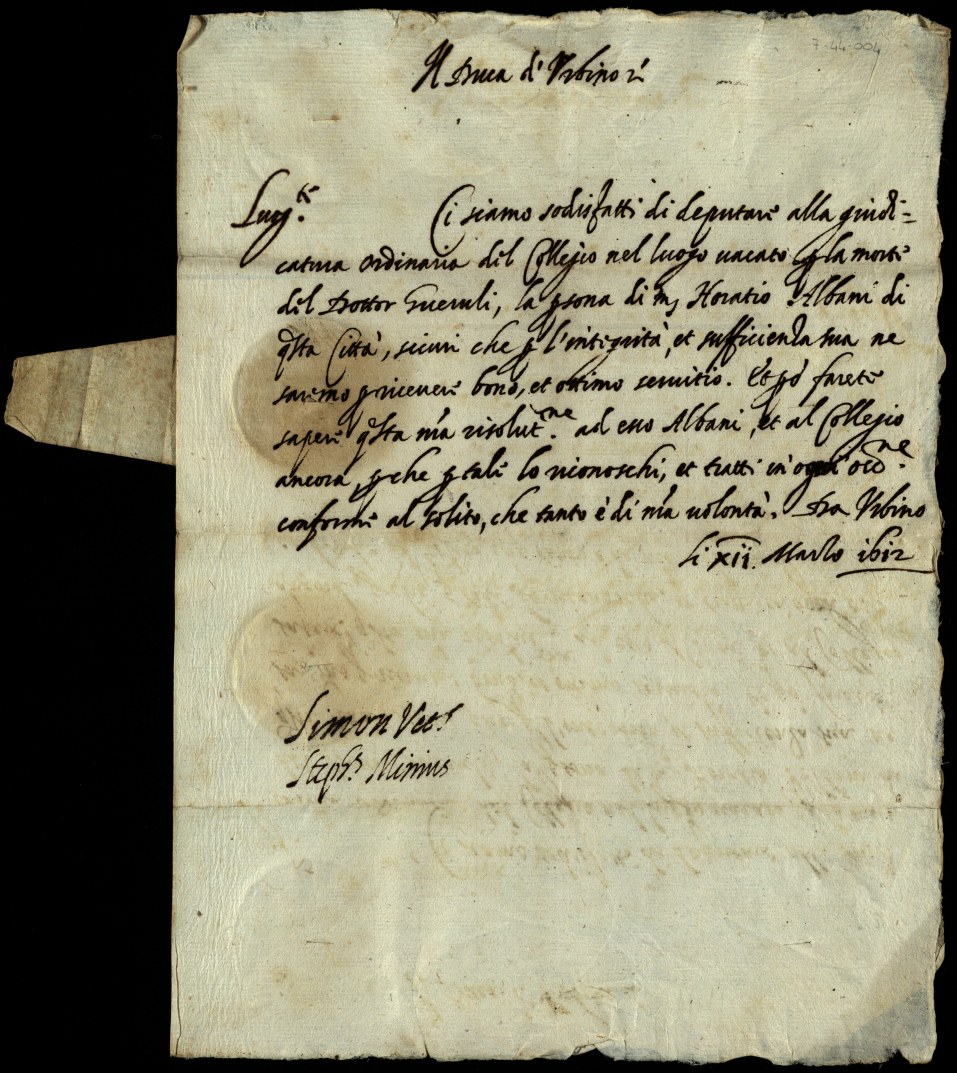 7-44-004
Il Duca d'Urbino
Luog.te Ci siamo sodisfatti di deputare alla giudi=
catura ordinaria del Collegio nel luogo vacato p la morte
del Dottor Gueruli, la psona di m Horatio Albani di
qsta Città, sicuri che p l'integrità, et sufficienza sua ne
saremo p ricevere bono, et ottimo servitio. Et pò farete
sapere qsta nra risolut.ne ad esso Albani, et al Collegio
ancora, p che p tale lo riconoschi, et tratti in ogni occ.ne
conforme al solito, che tanto è di nra volontà. Da Urbino
li xii. Marzo 1612
Simon Vet.s
Steph.s Minius